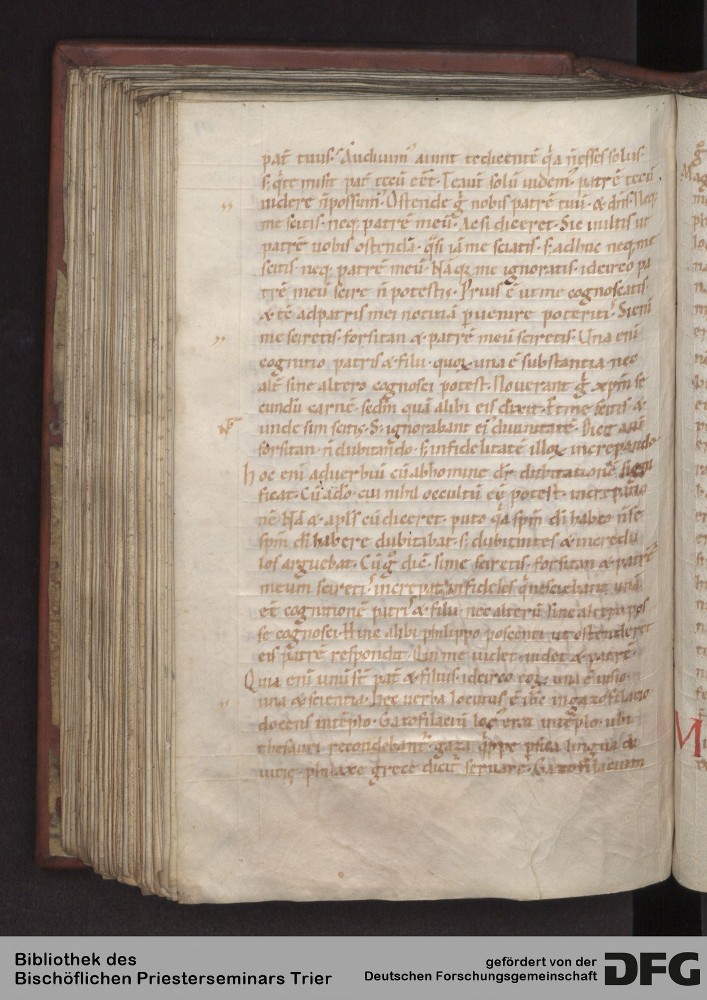 patr̄ tuus. Audiuim᾽ aiunt te dicentē q̇a n̄ esses solus.
s; q̇ te misit pat̄ tecū eēt. Tecū solū uidem᾽ patrē tecū
uidere n̄ possum᾽. Ostende g̊ nobis patrē tuū. & dn̄s. Neq;
me scitis. neq; patrē meū. Ac si diceret. Sic uultis ut
patrē uobis ostendā. q̇si iā me sciatis. s; adhuc neq; me
scitis neq; patrē meū. Nā q; me ignoratis. idcirco pa
trē meū scire n̄ potestis. Prius ē ut me cognoscatis.
& tc̄ ad patris mei noticiā puenire poteritis. Si eni
me sciretis. forsitan & patrē meū sciretis. Una eni
cognitio patris & filii. quoꝝ una ē substantia nec
alt̄ sine altero cognosci potest. Nouerant g̊ xp̄m se
cundū carnē. sedm̄ quā alibi eis dixit. Et me scitis &
unde sim scitis. S; ignorabant ei᾽ diuinitatē. Dicit aut̄
forsitan. n̄ dubitando. s; infidelitatē illoꝝ increpando.
hoc eni aduerbiū cū ab homine dr̄ dubitationē signi
ficat. Cū a dō. cui nihil occultū eē potest. increpatio
nē. Nā & apl̄s cū diceret. puto q̇a sp̄m di habeo n̄ se
sp̄m di habere dubitabat. s; dubitantes & incredu
los arguebat. Cū g̊ dic̄. si me sciretis. forsitan & patrē
meum sciretis. increpat infideles q̇ nesciebant unā
eē cognitionē patris & filii. nec alterū sine altero pos
se cognosci. Hinc alibi philippo poscenti ut ostenderet
eis patrē respondit. Qui me uidet. uidet & patrē.
Quia eni unū st̄ pat̄ & filius. idcirco eoꝝ una ē uisio.
una & scientia. Hec uerba locutus ē ih̄c in gazofilacio
docens in tēplo. Gazofilaciū loc᾽ erat in tēplo. ubi
thesauri recondebant᾽. gaza q̇ppe psica lingua di
uitię. philaxe grece dicit᾽ seruare. Gazofilacium
Bibliothek des
Bischöflichen Priesterseminars Trier
gefördert von der
Deutschen Forschungsgemeinschaft
DFG